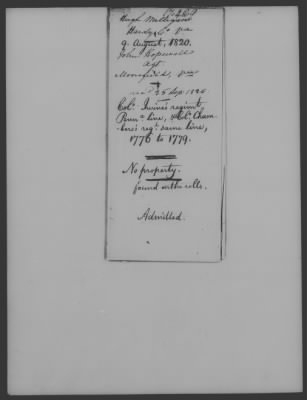 Hugh Milligan
Hardy Co. Va
9. August, 1820.
John Hopewell
Agt
Moorefield, Va
25 Sep. 1820
Col. Irvine's regiment,
Penn. line, & Col. Cham
-bers' regt. same line,
1776 to 1779.
No property.
found on the rolls.
Admitted.